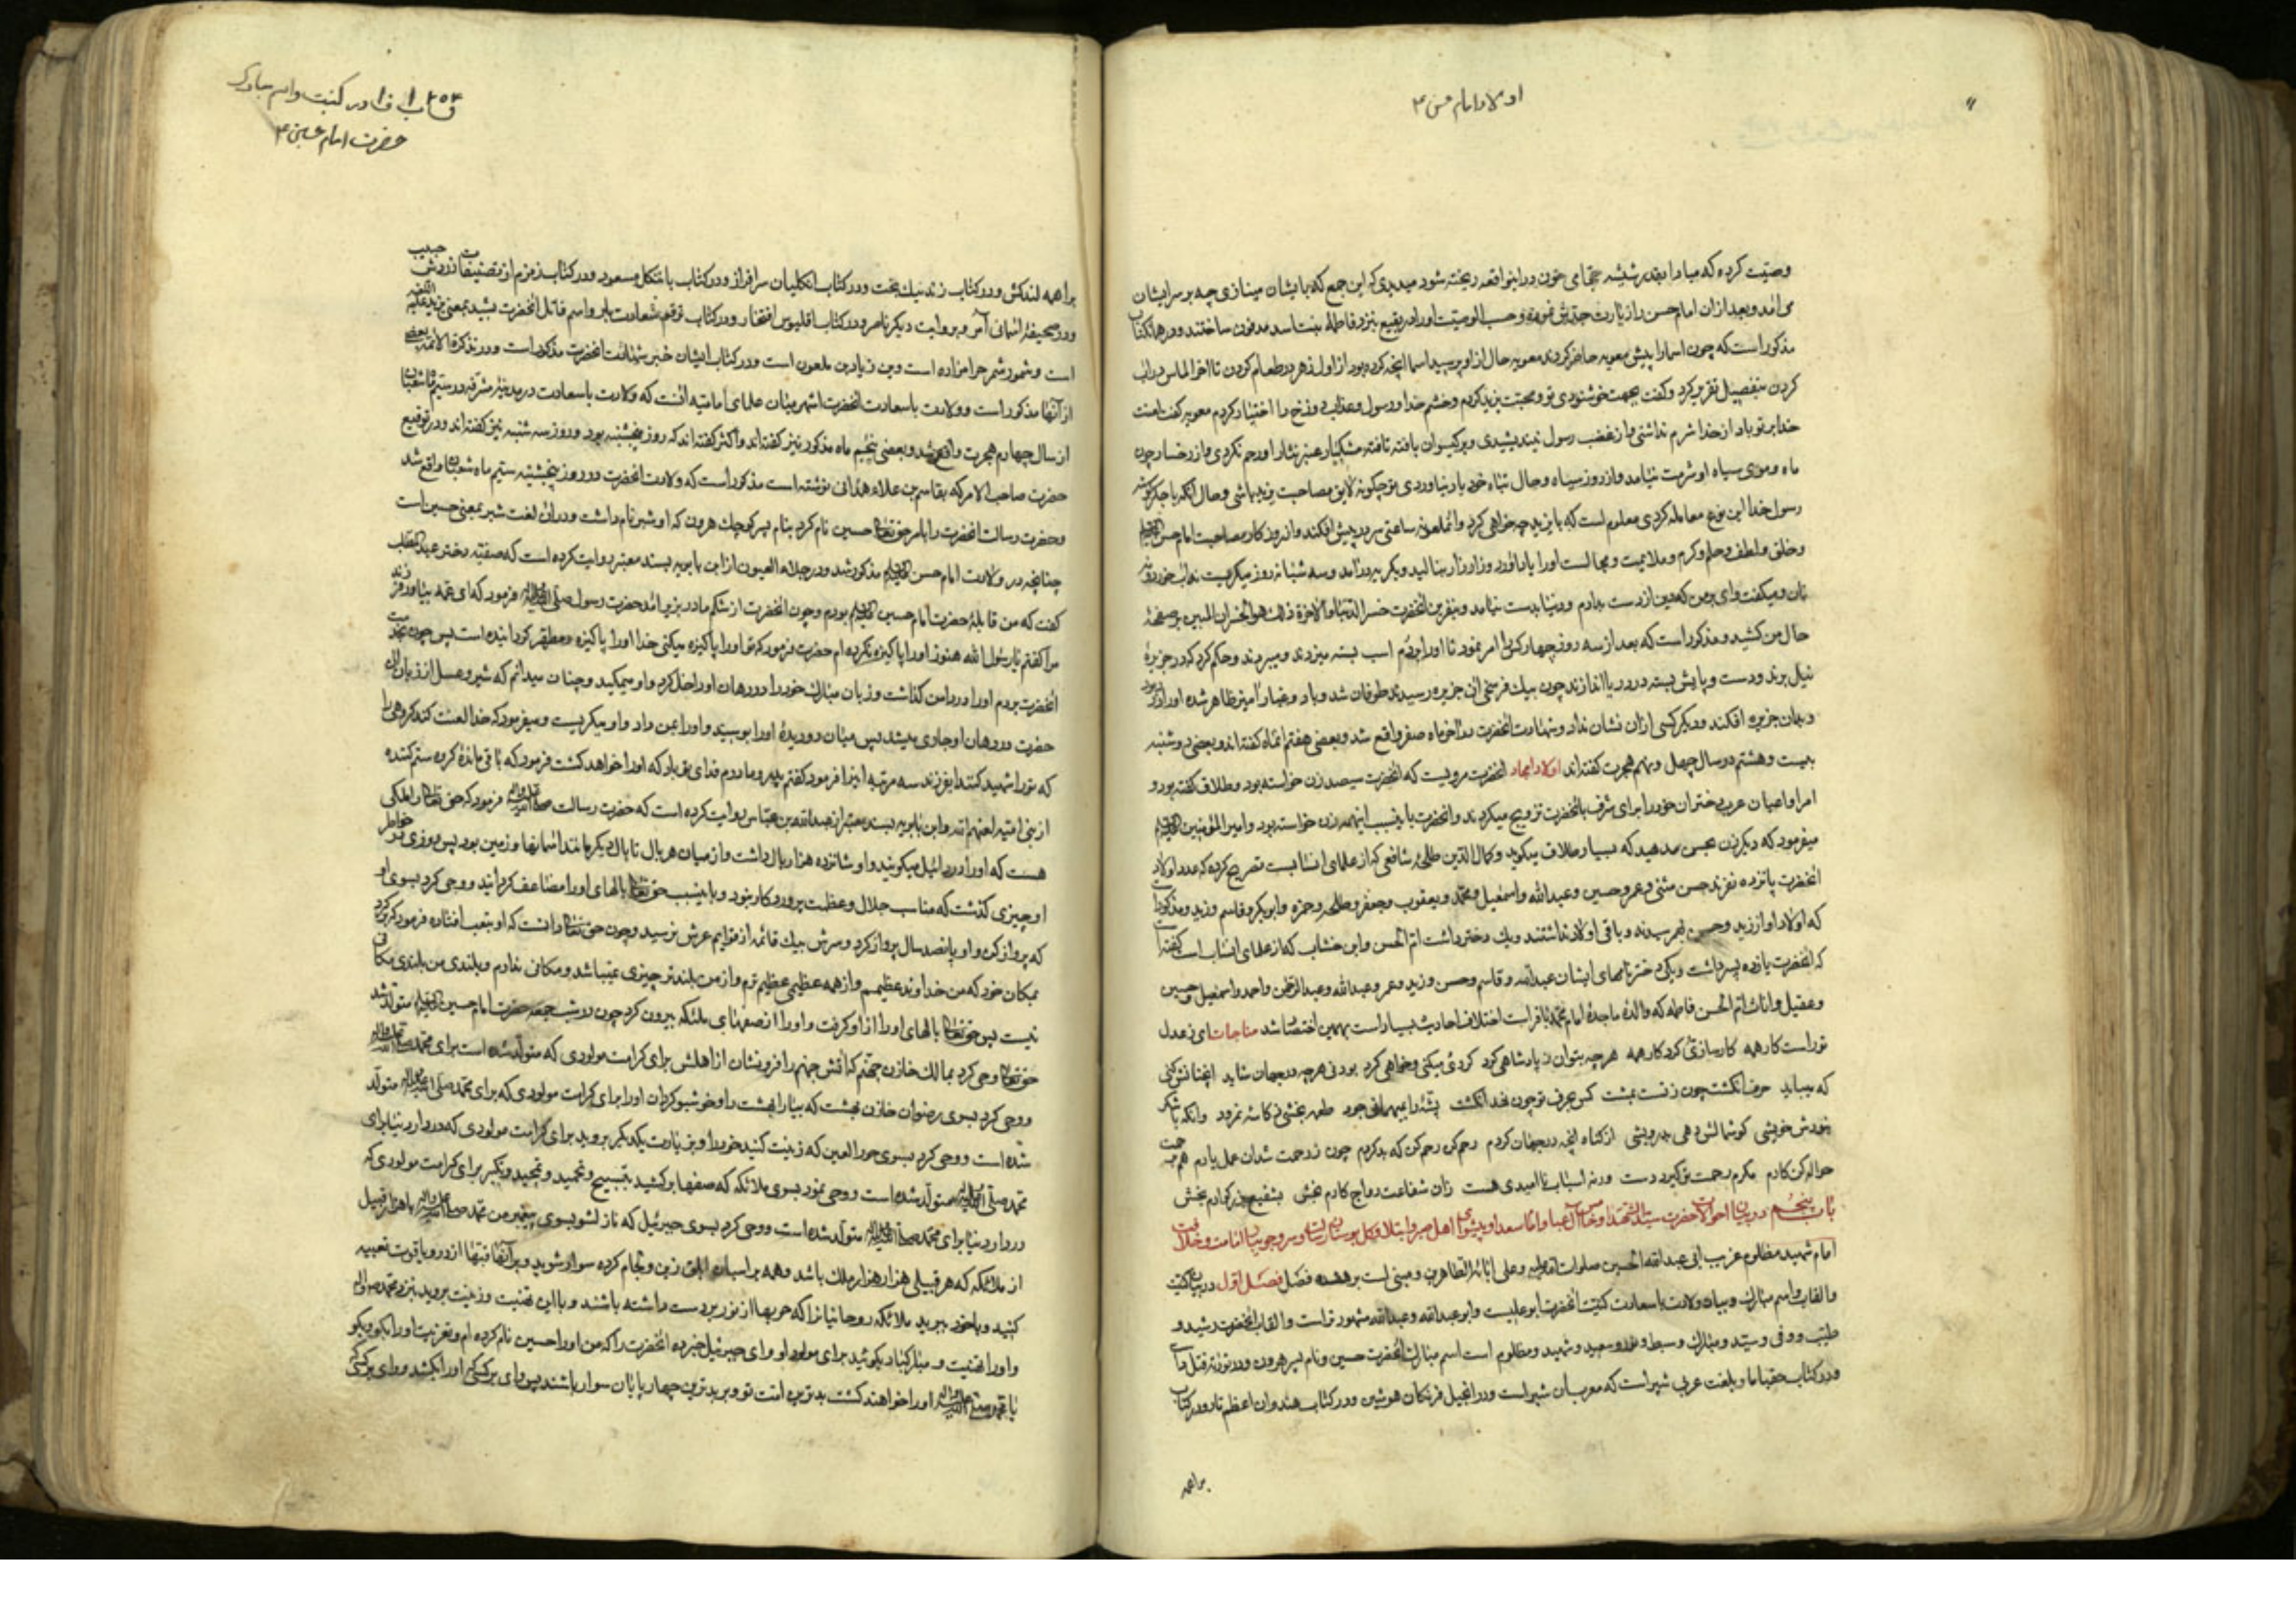 اولاد امام حسن ع
وصیت کرده که مبادا بقدر شیشه حجامی خون در اینواقعه ریخته شود میدیدی که این جمع که با ایشان مینازی چه بر سر ایشان
می آمد و بعد از آن امام حسن را زیارت جدش نموده و حسب الوصیت او را در بقیع نزد فاطمه بنت اسد مدفون ساختند و در همان کتاب
مذکور است که چون اسما را پیش معویه حاضر کردند معویه حال از او پرسید اسما آنچه کرده بود از اول زهر در طعام کردن تا آخر الماس در آب
کردن بتفصیل تقریر کرد و گفت بجهت خوشنودی تو و محبت یزید کردم و خشم خدا و رسول و عذاب دوزخ را اختیار کردم معویه گفت لعنت
خدا بر تو باد از خدا شرم نداشتی و از غضب رسول نیندیشیدی و بر گیسوان بافته تافته مشکبار عنبر نثار او رحم نکردی و از رخسار چون
ماه و موی سیاه او شرمت نیامد و از روز سیاه و حال تباه خود یاد نیاوردی تو چگونه لایق مصاحبت یزید باشی و حال آنکه با جگرگوشه
رسول خدا این نوع معامله کردی معلوم است که با یزید چه خواهی کرد و آنملعونه ساعتی سر در پیش افکند و از روزگار مصاحبت امام حسن
و خلق و لطف و حلم و کرم و ملایمت و مجالست او را یاد آورد و زار زار بنالید و بگریه در آمد و سه شبانه روز میگریست نه آب خورد و نه
نان و میگفت وای بر من که دین از دست بدادم و دنیا بدست نیامد و بنفرین آنحضرت خسر الدنیا و الآخرة ذلک هو الخسران المبین بر صفحهٔ
حال من کشید و مذکور است که بعد از سه روز چهار کس را امر نمود تا او را بر دم اسب بسته میزدند و میبردند و حکم کرد که در جزیرهٔ
نیل برند و دست و پایش بسته در دریا اندازند چون بیک فرسخی آن جزیره رسیدند طوفان شد و باد و غبار آمیز ظاهر شده او را در ربود
و بمان جزیره افکند و دیگر کسی از آن نشان نداد و شهادت آنحضرت در آخر ماه صفر واقع شد و بعضی هفتم آنماه گفته اند و بعضی دوشنبه
بیست و هشتم در سال چهل و نهم هجرت گفته اند اولاد امجاد آنحضرت مرویست که آنحضرت سیصد زن خواسته بود و طلاق گفته بود و
امرا و اعیان عرب دختران خود را برای شرف بآنحضرت تزویج میکردند و آنحضرت باینسبب اینهمه زن خواسته بود و امیر المؤمنین
میفرمود که دیگر زن بحسن مدهید که بسیار طلاق میگوید و کمال الدین طلحهٔ شافعی که از علمای انسابست تصریح کرده که عدد اولاد
آنحضرت پانزده نفرند حسن مثنی و عمر و حسین و عبدالله و اسمعیل و محمد و یعقوب و جعفر و طلحه و حمزه و ابوبکر و قاسم و زید و مذکور است
که اولاد او از زید و حسن بهم رسیدند و باقی اولاد نداشتند و یک دختر داشت ام الحسن و ابن خشاب که از علمای انساب است گفته
که آنحضرت یازده پسر داشت و یکی دختر نامهای ایشان عبدالله و قاسم و حسن و زید و عمر و عبیدالله و عبدالرحمن و احمد و اسمعیل و حسین
و عقیل و اناث ام الحسن فاطمه که والدهٔ ماجدهٔ امام محمد باقر است اختلاف احادیث بسیار است بهمین اختصار شد مناجات ای ز عدل
تو راست کار همه کارسازی کرد کار همه هر چه بتوان ز پادشاهی کرد کردی میکنی و خواهی کرد بودنی هر چه در جهان شاید آنچنانش کنی
که میباید حرف انگشت چون ز تست بمشت کس بحرف تو چون نهد انگشت پشه را میهمانی جود طعمه بخشی ز کاسهٔ نمرود وانکه با شکر
خودش خویشی گوشمالش دهی بدرویشی از گناه آنچه در جهان کردم رحم کن رحم کن که بد کردم چون ز رحمت شد آن عمل یارم هم برحمت
حواله کن کارم مگرم رحمت تو گیرد دست ورنه اسباب ناامیدی هست زان شفاعت رواج کارم بخش بشفیع بزرگوارم بخش
باب پنجم در بیان احوالات حضرت سید الشهدا و خامس آل عبا و امام سعدا و پیشوای اهل صبر و ابتلا و گل بوستان رسالت و سرو جویبار امامت و خلافت
امام شهید مظلوم غریب ابی عبدالله الحسین صلوات الله علیه و علی آبائه الطاهرین و مبنی است بر هفده فصل فصل اول در بیان کنیت
و القاب و اسم مبارک و بیان ولادت باسعادت کنیت آنحضرت ابو علیست و ابو عبدالله و عبدالله مشهور تر است و القاب آنحضرت رشید و
طیب و وفی و سید و مبارک و سبط و سعید و شهید و مظلوم است اسم مبارک آنحضرت حسین و نام پسر هرون و در توریة
و در کتاب و بلغت عربی شبیر است که معربان شبیر است و در انجیل فرنگان هوشین و در کتاب هندوان اعظم تار و در کتاب
براهمه
۲۵۳
باب ۵ ف ۱ در کنیت و اسم مبارک
حضرت امام حسین ع
براهمه لندکش و در کتاب زند نیک بخت و در کتاب انکلیان سرافراز و در کتاب با متکل مسعود و در کتاب زمزم از تصنیفات زردشت حبیب
و در صحیفهٔ آسمانی آمر و بروایت دیگر ناصر و در کتاب اقلیوس افتخار و در کتاب توقع شهادت یلو و اسم قاتل آنحضرت بشید بمعنی یزید علیه اللعنه
است و شمود شمر حرامزاده است و بن زیاد بن ملعون است و در کتاب ایشان خبر شهادت آنحضرت مذکور است و در تذکرة الائمه بعضی
از آنها مذکور است و ولادت باسعادت آنحضرت اشهر میان علمای امامیه آنست که ولادت باسعادت در مدینهٔ مشرفه در سیم ماه شعبان
از سال چهارم هجرت واقع شد و بعضی پنجم ماه مذکور نیز گفته اند و اکثر گفته اند که روز پنجشنبه بود و روز سه شنبه نیز گفته اند و در توقیع
حضرت صاحب الامر که بقاسم بن علاء همدانی نوشته است مذکور است که ولادت آنحضرت در روز پنجشنبه سیم ماه شعبان واقع شد
و حضرت رسالت آنحضرت را بامر حق تعالی حسین نام کرد بنام پسر کوچک هرون که او شبیر نام داشت و در آن لغت شبیر بمعنی حسین است
چنانچه در ولادت امام حسن مذکور شد و در جلاء العیون از ابن بابویه بسند معتبر روایت کرده است که صفیه دختر عبدالمطلب
گفت که من قابلهٔ حضرت امام حسین بودم و چون آنحضرت از شکم مادر بزیر آمد حضرت رسول صلی الله علیه و آله فرمود که ای عمه بیاور فرزند
مرا گفتم یا رسول الله هنوز او را پاکیزه نکرده ام حضرت فرمود که تو او را پاکیزه میکنی خدا او را پاکیزه و مطهر گردانیده است پس چون بخدمت
آنحضرت بردم او را در دامن گذاشت و زبان مبارک خود را در دهان او داخل کرد و او میمکید و چنان میدانم که شیر و عسل از زبان آن
حضرت در دهان او جاری میشد پس میان دو دیدهٔ او را بوسید و او را بمن داد و او میگریست و میفرمود که خدا لعنت کند گروهی را
که تو را شهید کنند ای فرزند سه مرتبه اینرا فرمود گفتم پدر و مادرم فدای تو باد که او را خواهد کشت فرمود که باقی ماندهٔ گروه ستم کننده
از بنی امیه لعنهم الله و ابن بابویه بسند معتبر از عبدالله بن عباس روایت کرده است که حضرت رسالت فرمود که حق تعالی را ملکی
هست که او را دردائیل میگویند و او شانزده هزار بال داشت و از میان هر بال تا بال دیگر مانند آسمانها و زمین بود پس روزی در خاطر
او چیزی گذشت که مناسب جلال و عظمت پروردگار نبود و باینسبب حق تعالی بالهای او را مضاعف گردانید و وحی کرد بسوی او
که پرواز کن و او پانصد سال پرواز کرد و سرش بیک قائمه از قوایم عرش نرسید و چون حق تعالی دانست که او بتعب افتاده فرمود که برگرد
بمکان خود که من خداوند عظیمم و از همه عظیمی عظیم ترم و از من بلندتر چیزی نمیباشد و مکانی ندارم و بلندی من بلندی مکانی
نیست پس حق تعالی بالهای او را از او گرفت و او را از صفهای ملائکه بیرون کرد چون در شب جمعه حضرت امام حسین متولد شد
حق تعالی وحی کرد بمالک خازن جهنم که آتش جهنم را فرو نشان از اهلش برای کرامت مولودی که متولد شده است برای محمد
و وحی کرد بسوی رضوان خازن بهشت که بیارا بهشت را و خوشبو گردان او را برای کرامت مولودی که برای محمد متولد
شده است و وحی کرد بسوی حور العین که زینت کنید خود را و بزیارت یکدیگر بروید برای کرامت مولودی که در دار دنیا برای
محمد متولد شده است و وحی نمود بسوی ملائکه که صفها برکشید بتسبیح و تحمید و تمجید و تکبیر برای کرامت مولودی که
در دار دنیا برای محمد متولد شده است و وحی کرد بسوی جبرئیل که نازل شو بسوی پیغمبر من محمد با هزار قبیل
از ملائکه که هر قبیلی هزار هزار ملک باشد و همه بر اسبان ابلق زین و لجام کرده سوار شوید و بر آنها قبها از در و یاقوت تعبیه
کنید و با خود ببرید ملائکه روحانیانرا که حربها از نور بر دست داشته باشند و با این تهنیت و زینت بروید بنزد محمد
و او را تهنیت و مبارکباد بگوئید برای مولود او و ای جبرئیل خبر ده آنحضرت را که من او را حسین نام کرده ام و تعزیت او را بگو و بگو
یا محمد او را خواهند کشت بدترین امت تو و بر بدترین چهارپایان سوار باشند پس وای بر کسی که او را بکشد و وای بر کسی که